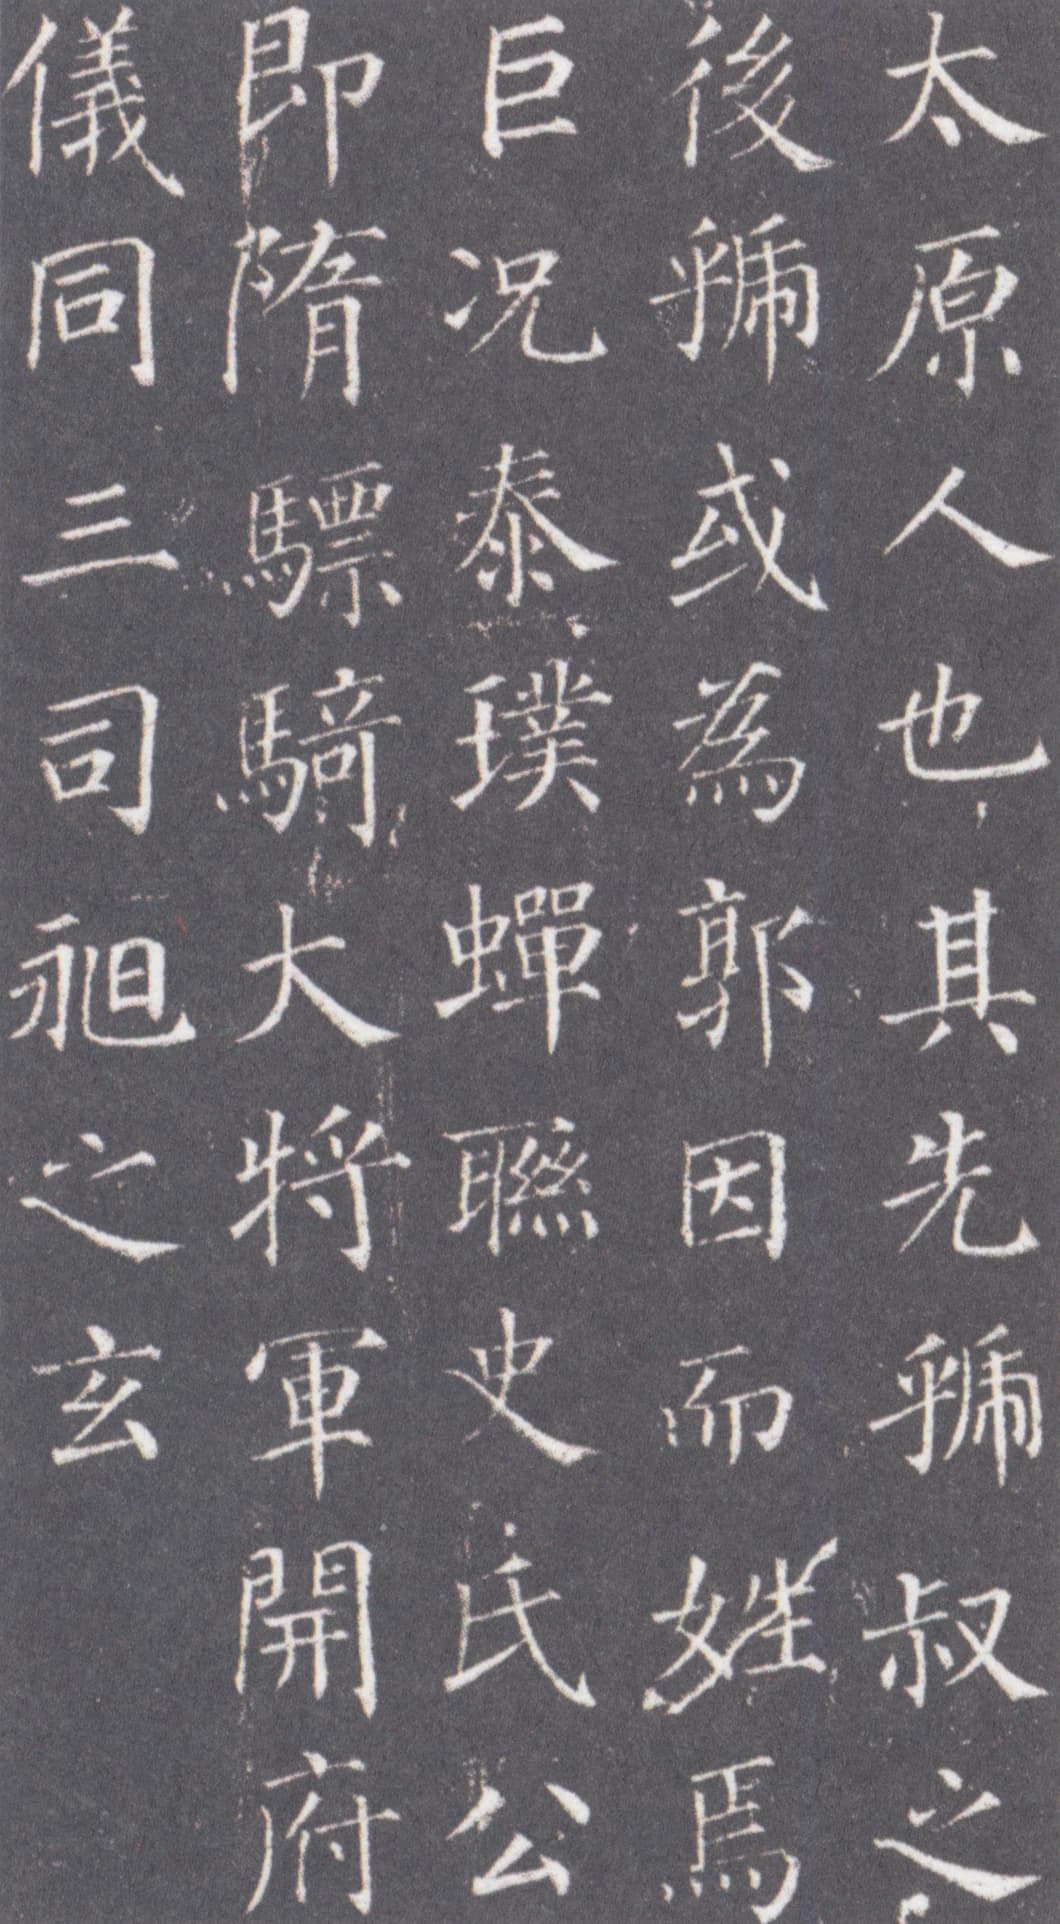 太原人也其先虢叔之
後虢或為郭因而姓焉
巨況泰璞蟬聯史氏公
即隋驃騎大將軍開府
儀同三司昶之玄